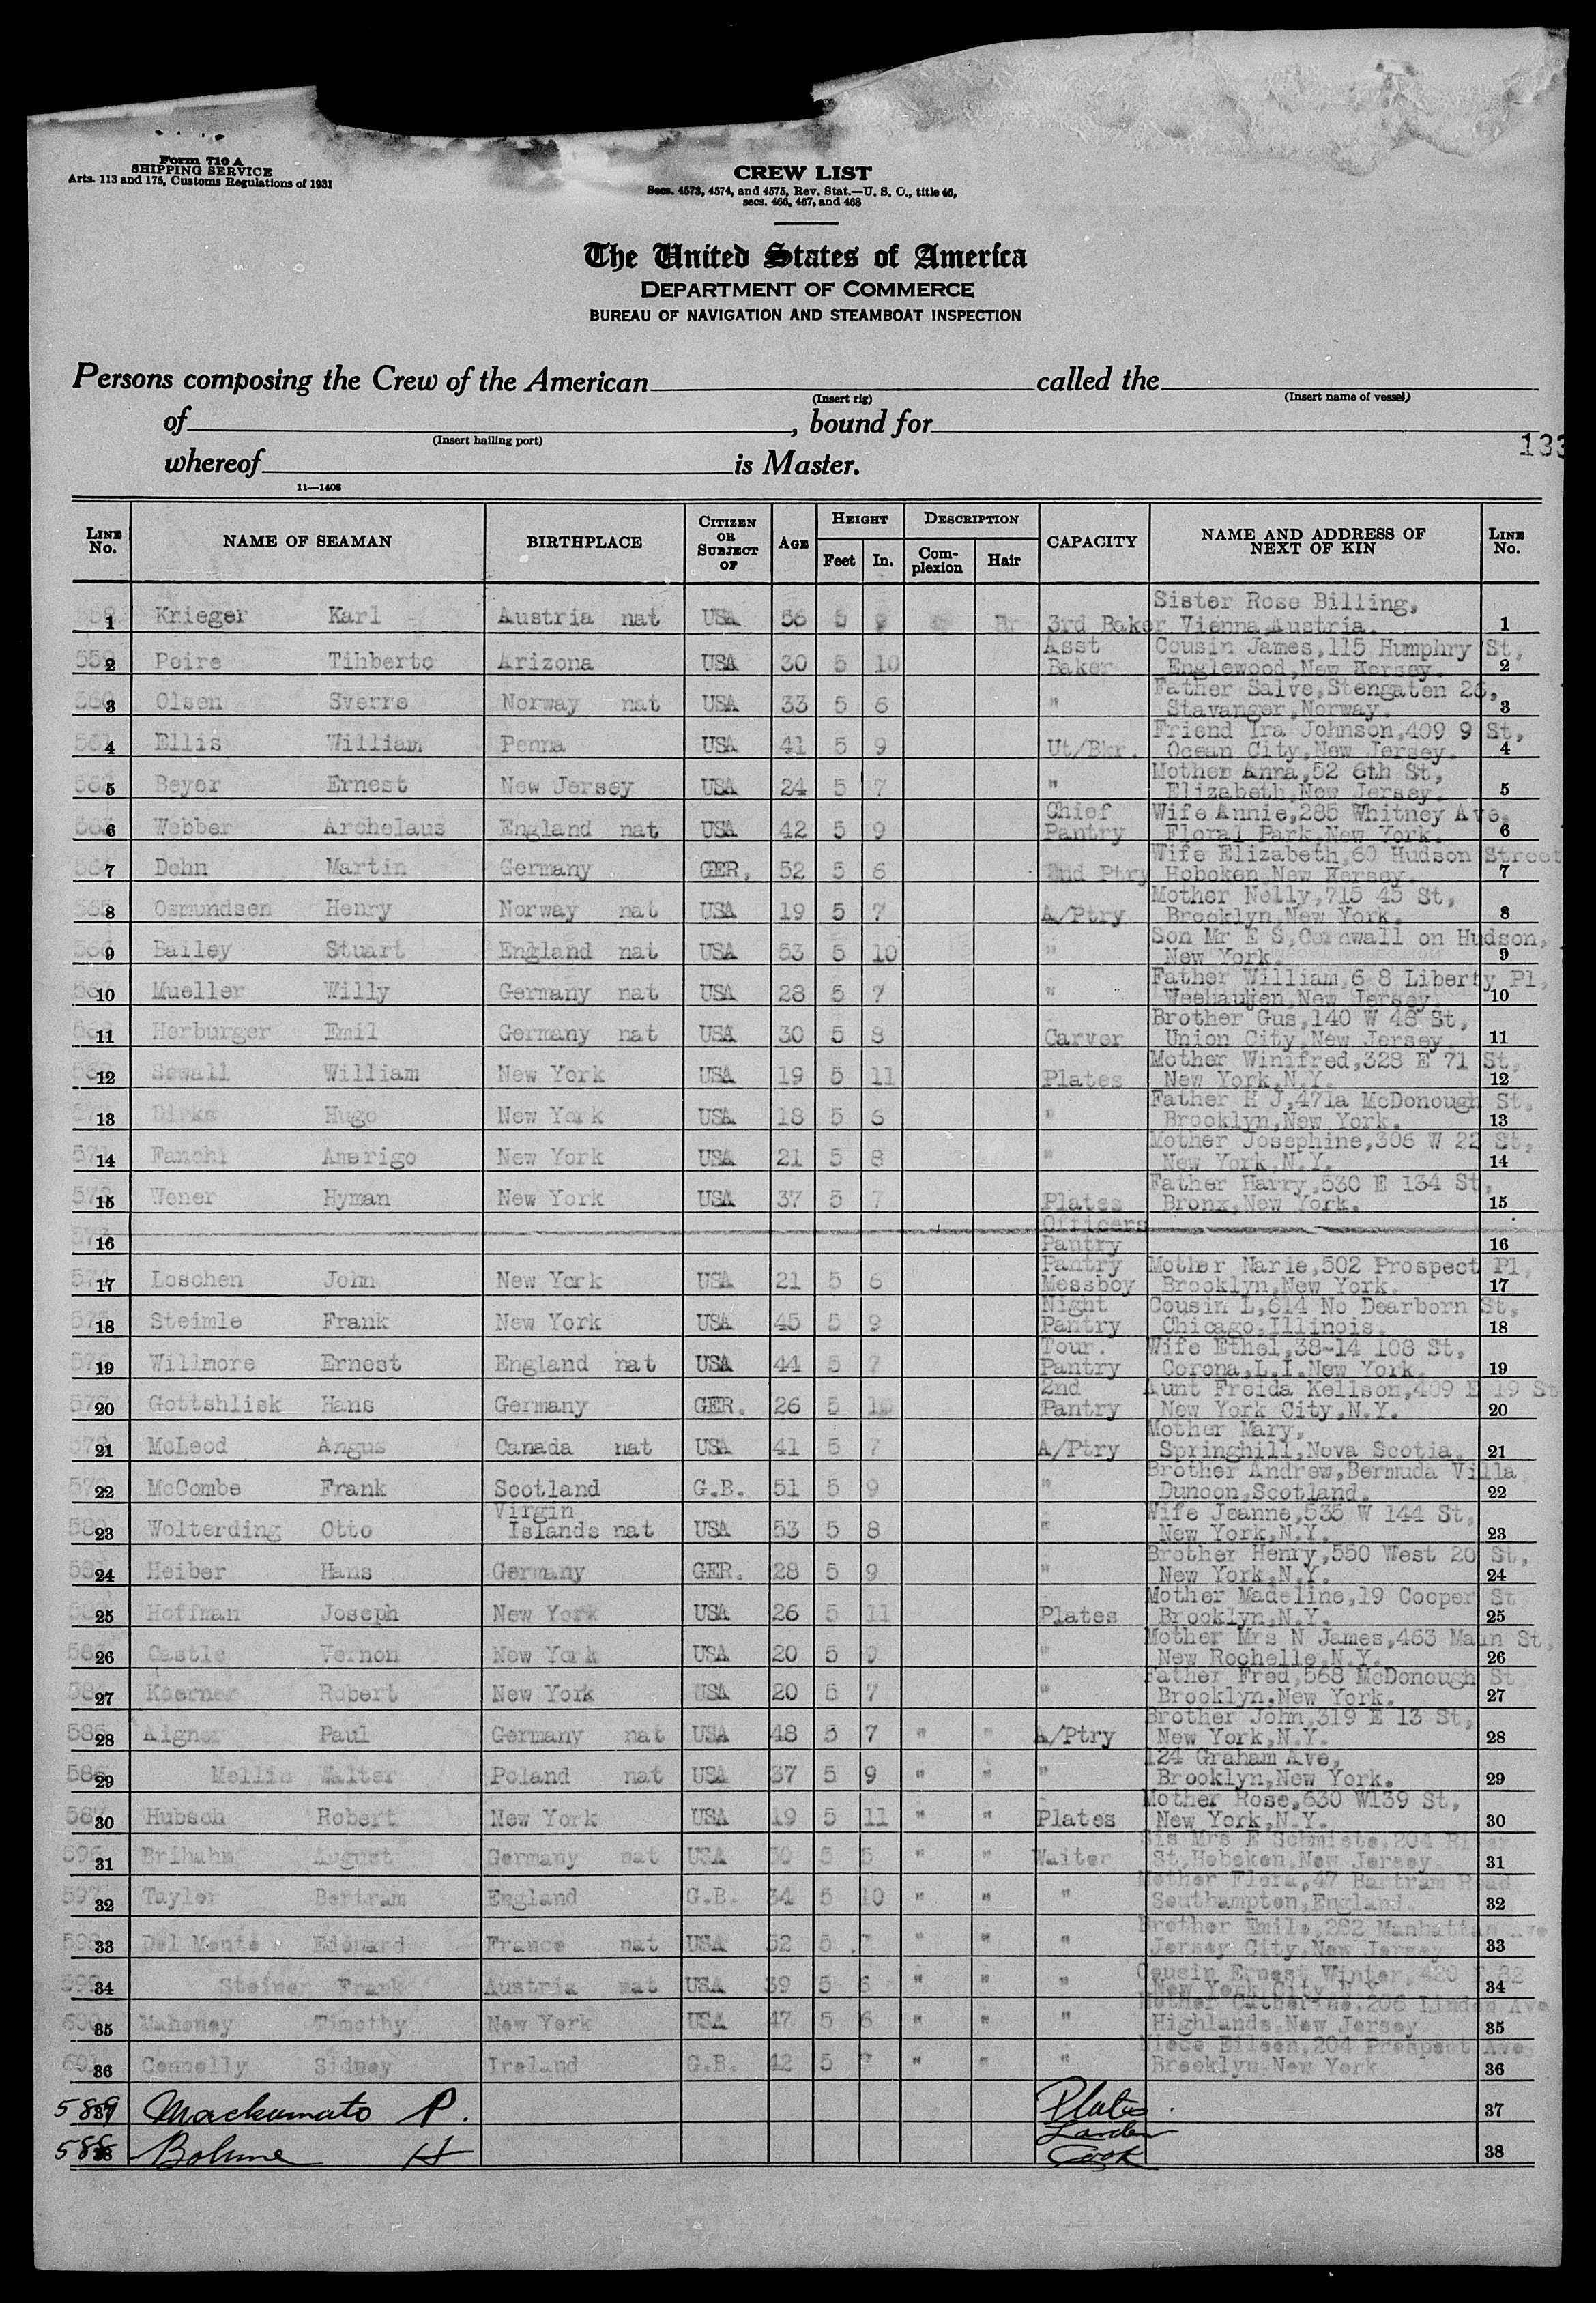 Form 710 A
SHIPPING SERVICE
Arts. 113 and 175, Customs Regulations of 1931
CREW LIST
Secs. 4573, 4574, and 4575, Rev. Stat.—U. S. C., title 46,
secs. 466, 467, and 468
The United States of America
DEPARTMENT OF COMMERCE
BUREAU OF NAVIGATION AND STEAMBOAT INSPECTION
Persons composing the Crew of the American called the
(Insert rig) (Insert name of vessel)
of , bound for
(Insert hailing port)
133
whereof is Master.
11—1408
LINE No. NAME OF SEAMAN BIRTHPLACE CITIZEN OR SUBJECT OF AGE HEIGHT Feet In. DESCRIPTION Complexion Hair CAPACITY NAME AND ADDRESS OF NEXT OF KIN LINE No.
1 Krieger Karl Austria nat USA 56 5 9 Br 3rd Baker Sister Rose Billing, Vienna, Austria. 1
559 2 Peire Tihberto Arizona USA 30 5 10 Asst Baker Cousin James, 115 Humphry St, Englewood, New Kersey. 2
560 3 Olsen Sverre Norway nat USA 33 5 6 " Father Salve, Stengaten 26, Stavanger, Norway. 3
561 4 Ellis William Penna USA 41 5 9 Ut/Bkr. Friend Ira Johnson, 409 9 St, Ocean City, New Jersey. 4
5 Beyer Ernest New Jersey USA 24 5 7 " Mother Anna, 52 6th St, Elizabeth, New Jersey. 5
6 Webber Archelaus England nat USA 42 5 9 Chief Pantry Wife Annie, 285 Whitney Ave, Floral Park, New York. 6
7 Dehn Martin Germany GER. 52 5 6 2nd Ptry Wife Elizabeth, 60 Hudson Street Hoboken, New Kersey. 7
565 8 Osmundsen Henry Norway nat USA 19 5 7 A/Ptry Mother Nelly, 715 45 St, Brooklyn, New York. 8
566 9 Bailey Stuart England nat USA 53 5 10 " Son Mr E S, Cornwall on Hudson, New York. 9
10 Mueller Willy Germany nat USA 28 5 7 " Father William, 6 8 Liberty Pl, Weehauken, New Jersey. 10
11 Herburger Emil Germany nat USA 30 5 8 Carver Brother Gus, 140 W 48 St, Union City, New Jersey. 11
12 Sewall William New York USA 19 5 11 Plates Mother Winifred, 328 E 71 St, New York, N.Y. 12
13 Dirks Hugo New York USA 18 5 6 " Father H J, 471a McDonough St, Brooklyn, New York. 13
14 Fanchi Amerigo New York USA 21 5 8 " Mother Josephine, 306 W 22 St, New York, N.Y. 14
15 Wener Hyman New York USA 37 5 7 Plates Father Harry, 530 E 134 St, Bronx, New York. 15
16 Officers Pantry 16
574 17 Loschen John New York USA 21 5 6 Pantry Messboy Mother Narie, 502 Prospect Pl, Brooklyn, New York. 17
575 18 Steimle Frank New York USA 45 5 9 Night Pantry Cousin L, 614 No Dearborn St, Chicago, Illinois. 18
576 19 Willmore Ernest England nat USA 44 5 7 Tour. Pantry Wife Ethel, 38-14 108 St, Corona, L.I. New York. 19
577 20 Gottshlisk Hans Germany GER. 26 5 2nd Pantry Aunt Freida Kellson, 409 E 19 St New York City, N.Y. 20
578 21 McLeod Angus Canada nat USA 41 5 7 A/Ptry Mother Mary, Springhill, Nova Scotia. 21
579 22 McCombe Frank Scotland G.B. 51 5 9 " Brother Andrew, Bermuda Villa Dunoon, Scotland. 22
580 23 Wolterding Otto Virgin Islands nat USA 53 5 8 " Wife Jeanne, 535 W 144 St, New York, N.Y. 23
581 24 Heiber Hans Germany GER. 28 5 9 " Brother Henry, 550 West 20 St, New York, N.Y. 24
25 Hoffman Joseph New York USA 26 5 11 Plates Mother Madeline, 19 Cooper St Brooklyn, N.Y. 25
26 Castle Vernon New York USA 20 5 9 " Mother Mrs N James, 463 Main St, New Rochelle, N.Y. 26
27 Koerner Robert New York USA 20 5 7 " Father Fred, 568 McDonough St Brooklyn, New York. 27
585 28 Aigner Paul Germany nat USA 48 5 7 " " A/Ptry Brother John, 319 E 13 St, New York, N.Y. 28
586 29 Mellin Walter Poland nat USA 37 5 9 " " " 124 Graham Ave, Brooklyn, New York. 29
587 30 Hubsch Robert New York USA 19 5 11 " " Plates Mother Rose, 630 W139 St, New York, N.Y. 30
596 31 Brihahm August Germany nat USA 50 5 5 " " Waiter Sis Mrs E Schmiste, 204 River St, Hoboken, New Jersey 31
597 32 Tayler Bertram England G.B. 34 5 10 " " " Mother Flora, 47 Bartram Road Southampton, England. 32
598 33 Del Monte Edouard France nat USA 52 5 7 " " " Brother Emile, 282 Manhattan Ave Jersey City, New Jersey 33
599 34 Steiner Frank Austria nat USA 39 5 6 " " " Cousin Ernest Winter, 420 E 82 New York City, N.Y. 34
600 35 Mahoney Timothy New York USA 47 5 6 " " " Mother Catherine, 206 Linden Ave Highlands, New Jersey 35
601 36 Connolly Sidney Ireland G.B. 42 5 7 " " " Niece Eileen, 204 Prospect Ave, Brooklyn New York 36
589 37 Mackumato P. Plates. 37
588 38 Bohme H Larder Cook 38